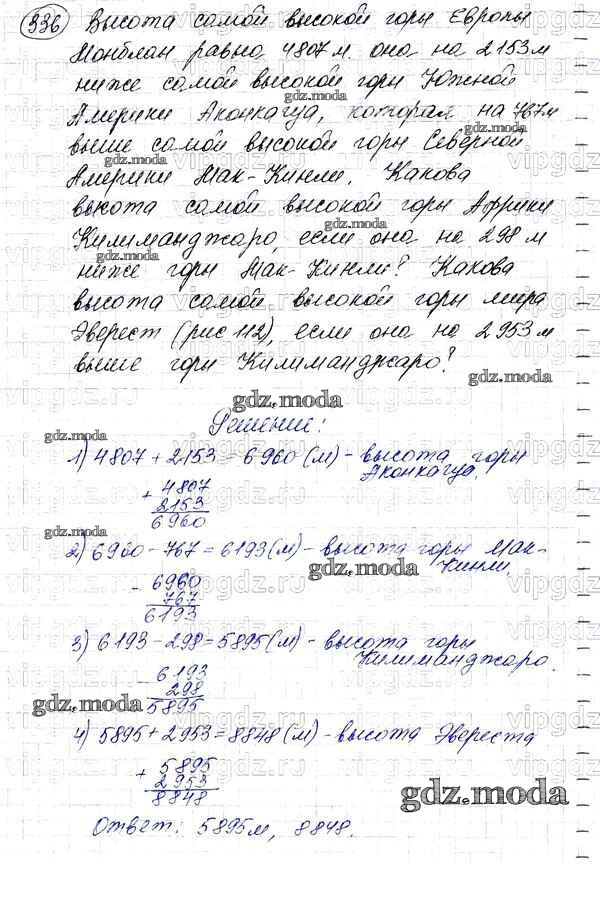 336 Высота самой высокой горы Европы
Монблан равна 4807 м. она на 2153 м
ниже самой высокой горы Южной
Америки Аконкагуа, которая на 767 м
выше самой высокой горы Северной
Америки Мак-Кинли. Какова
высота самой высокой горы Африки
Килиманджаро, если она на 298 м
ниже горы Мак-Кинли? Какова
высота самой высокой горы мира
Эверест (рис 112), если она на 2953 м
выше горы Килиманджаро?
gdz.moda
Решение:
1) 4807 + 2153 = 6960 (м) - высота горы
Аконкагуа.
+ 4807
2153
6960
2) 6960 - 767 = 6193 (м) - высота горы Мак-
Кинли.
gdz.moda
- 6960
767
6193
3) 6193 - 298 = 5895 (м) - высота горы
Килиманджаро.
- 6193
298
5895
gdz.moda
4) 5895 + 2953 = 8848 (м) - высота Эвереста
+ 5895
2953
8848
gdz.moda
Ответ: 5895 м, 8848.